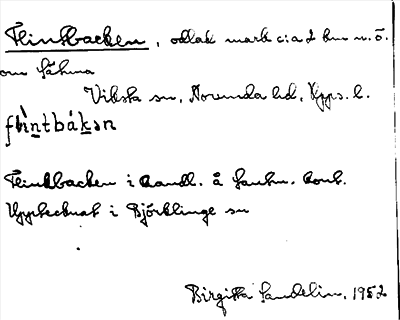 Flintbacken, odlad mark c:a 2 km n.ö.
om Sätuna
Viksta sn, Norunda hd, Upps. l.
Flintbacken i Landt. å Lantm. Cont.
Upptecknat i Björklinge sn
Birgitta Sandelin, 1952